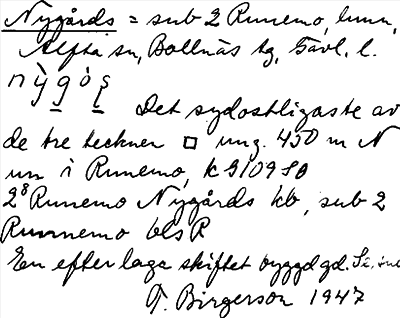 Nygårds = sub 2 Runemo, hmn,
Alfta sn, Bollnäs tg, Gävl. l.
nỳgòṣ
Det sydostligaste av
de tre tecknen □ ung. 450 m N
um i Runemo, k 9109 SO
2⁸ Runemo Nygårds kb, sub 2
Runnemo bls R
En efter laga skiftet byggd gd.
T. Birgerson 1947